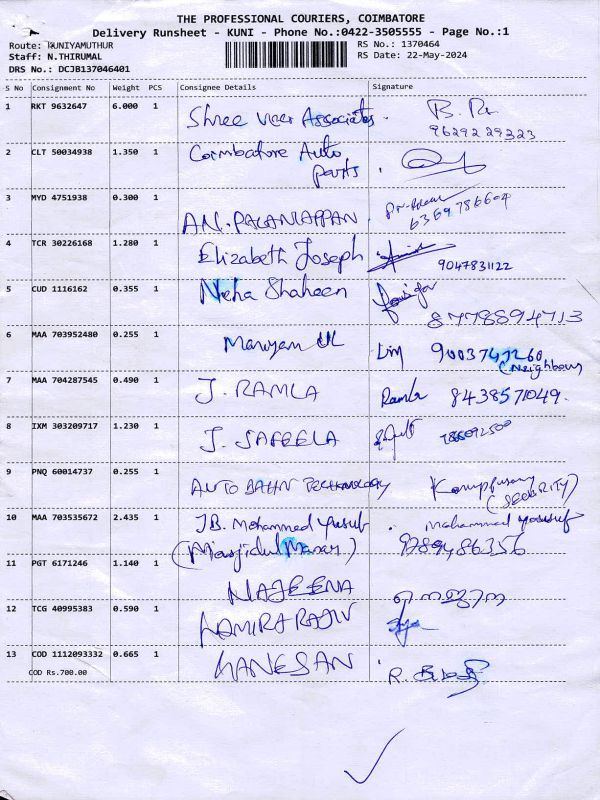 THE PROFESSIONAL COURIERS, COIMBATORE
Delivery Runsheet - KUNI - Phone No.:0422-3505555 - Page No.:1
Route: KUNIYAMUTHUR
RS No.: 1370464
Staff: N.THIRUMAL
RS Date: 22-May-2024
DRS No.: DCJB137046401
S No Consignment No Weight PCS Consignee Details Signature
1 RKT 9632647 6.000 1 Shree Veer Associates. B.
9629229323
2 CLT 50034938 1.350 1 Coimbatore Auto
parts.
3 MYD 4751938 0.300 1
AN. PALANIAPPAN 6369786604
4 TCR 30226168 1.280 1 Elizabeth Joseph 9047831122
5 CUD 1116162 0.355 1 Neha Shaheen
8778894713
6 MAA 703952480 0.255 1 Maruyam
(Neighbour
7 MAA 704287545 0.490 1 J. RAMLA Ramla 8438571049.
8 IXM 303209717 1.230 1 J. SAFEELA
9 PNQ 60014737 0.255 1 AUTO BAHN TECHNOLOGY
(SECURITY)
10 MAA 703535672 2.435 1 JB. Mohammed Yusuf mohammed yousuf
(Masjidul Manar) 9789486356
11 PGT 6171246 1.140 1
NAJEENA
12 TCG 40995383 0.590 1
13 COD 1112093332 0.665 1 GANESAN R.
COD Rs.700.00